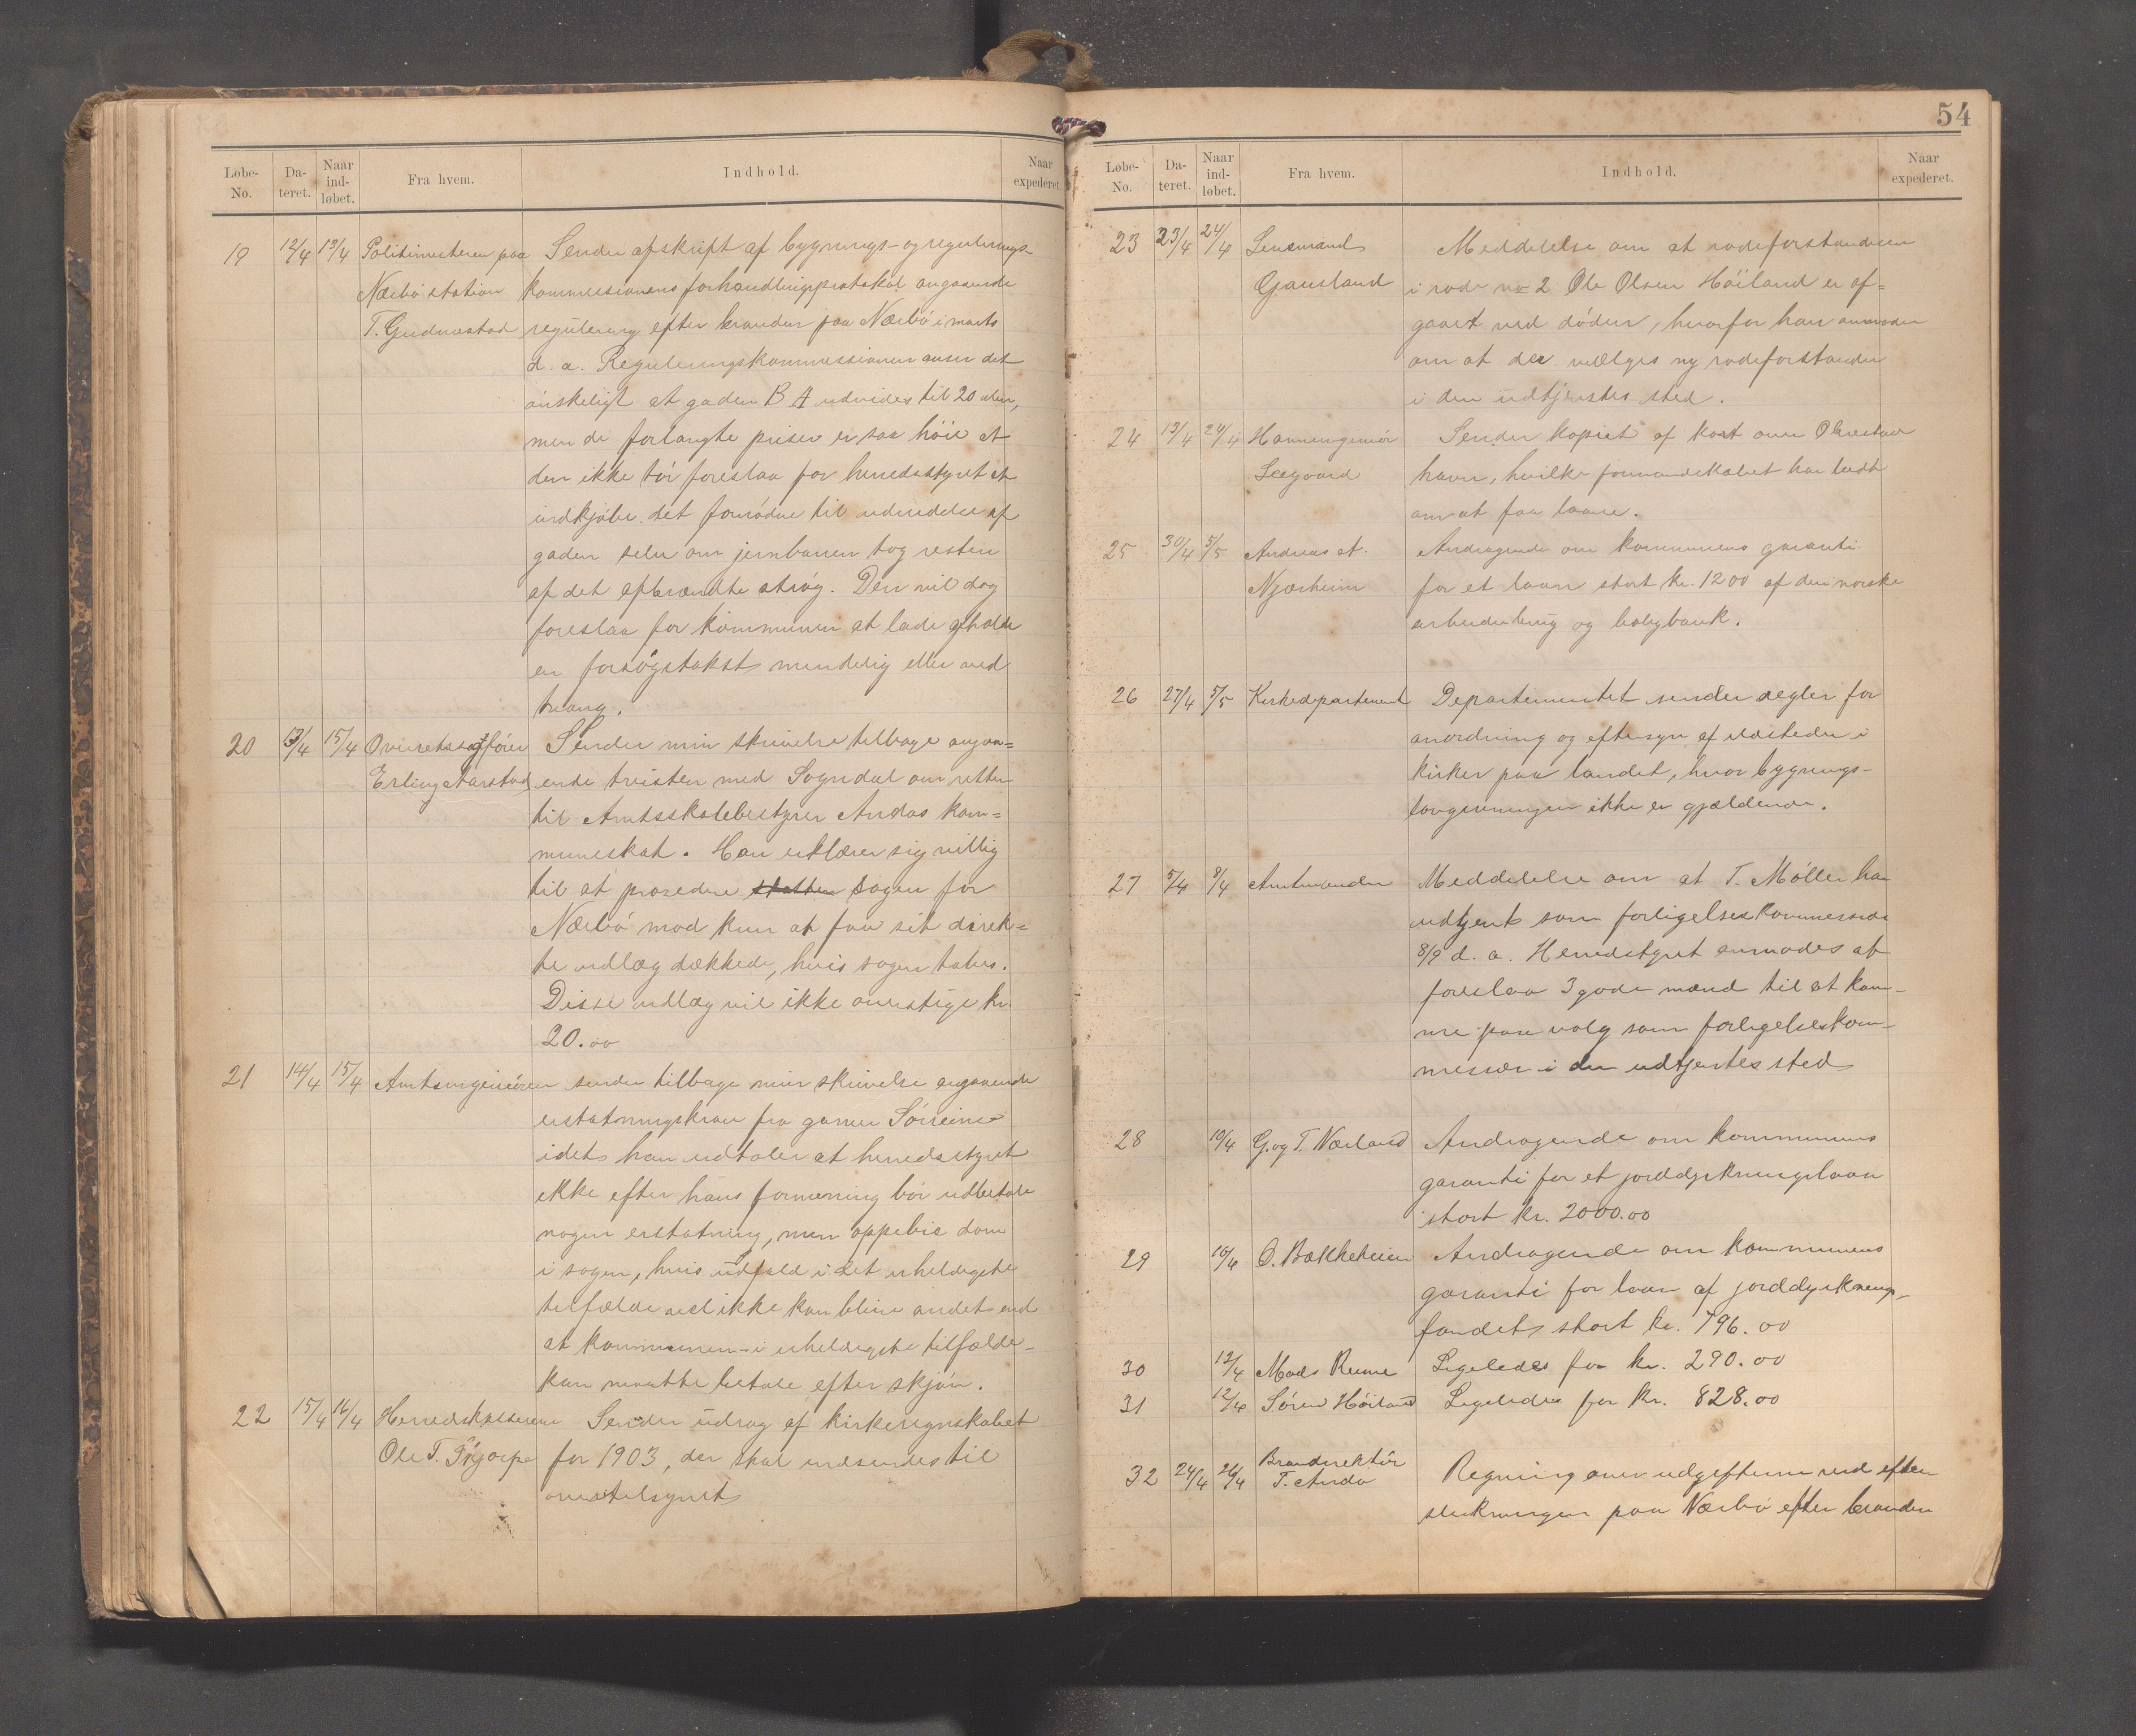 Løbe-No. Da-teret. Naar ind-løbet. Fra hvem. Indhold. Naar expederet.
19 12/4 13/4 Politimesteren paa Sender afskrift af bygnings- og regulerings-
Nærbö station kommissionens forhandlingsprotokol angaaende
T. Gudmestad regulering efter branden paa Nærbö i marts
d. a. Reguleringskommissionen anser det
önskeligt at gaden B A udvides til 20 alen,
men de forlangte priser er saa höie at
den ikke tör foreslaa for herredsstyret at
indkjöbe det fornödne til udvidelse af
gaden selv om jernbanen tog resten
af det afbrændte strög. Den vil dog
foreslaa for kommunen at lade afholde
en forsögstakst mindelig eller ved
tvang.
20 13/4 15/4 Overretssagförer Sender min skrivelse tilbage angaa=
Erling Aarstad ende tvisten med Sogndal om retten
til Amtsskolebestyrer Andas kom=
muneskat. Han erklærer sig villig
til at procedere sagen for
Nærbö mod kun at faa sit direk=
te udlæg dækkede, hvis sagen tabes.
Disse udlæg vil ikke overstige kr.
20.00
21 14/4 15/4 Amtsingeniören sender tilbage min skrivelse angaaende
erstatningskrav fra garver
idet han udtaler at herredsstyret
ikke efter hans formening bör udbetale
nogen erstatning, men oppebie dom
i sagen, hvis udfald i det uheldigste
tilfælde vel ikke kan blive andet end
at kommunen - i uheldigste tilfælde -
kan maatte betale efter skjön.
22 15/4 16/4 Herredskassereren Sender udrag af kirkeregnskabet
Ole T. for 1903, der skal indsendes til
overtilsynet
54
Løbe-No. Da-teret. Naar ind-løbet. Fra hvem. Indhold. Naar expederet.
23 23/4 24/4 Lensmand Meddelelse om at rodeforstanderen
Gausland i rode no 2 Ole Olsen Höiland er af=
gaaet ved döden, hvorfor han anmoder
om at der vælges ny rodeforstander
i den udtjentes sted.
24 13/4 24/4 Havneingeniör Sender kopiet af kart over Obrestad
Seegaard havn, hvilke formandskabet har bedt
om at faa laane.
25 30/4 5/5 Andreas A. Andragende om kommunens garanti
Njærheim for et laan stort kr. 1200 af den norske
arbeiderbrug og boligbank.
26 27/4 5/5 Kirkedepartement Departementet sender regler for
anordning og eftersyn af ildsteder i
kirker paa landet, hvor bygnings-
lovgivningen ikke er gjældende.
27 5/4 8/4 Amtmanden Meddelelse om at T. Möller har
udtjent som forligelseskommissær
8/9 d. a. Herredstyret anmodes at
foreslaa 3 gode mænd til at kom-
me paa valg som forligelseskom-
missær i den udtjentes sted
28 10/4 G. og T. Nærland Andragende om kommunens
garanti for et jorddyrkningslaan
stort kr. 2000.00
29 10/4 O. Bakkeheien Andragende om kommunens
garanti for laan af jorddyrknings-
fondet stort kr. 796.00
30 12/4 Mads Reime Ligeledes for kr. 290.00
31 12/4 Sören Höiland Ligeledes for kr. 828.00
32 24/4 26/4 Branddirektör
T. Anda Regning over udgifterne ved efter
slukningen paa Nærbö efter branden